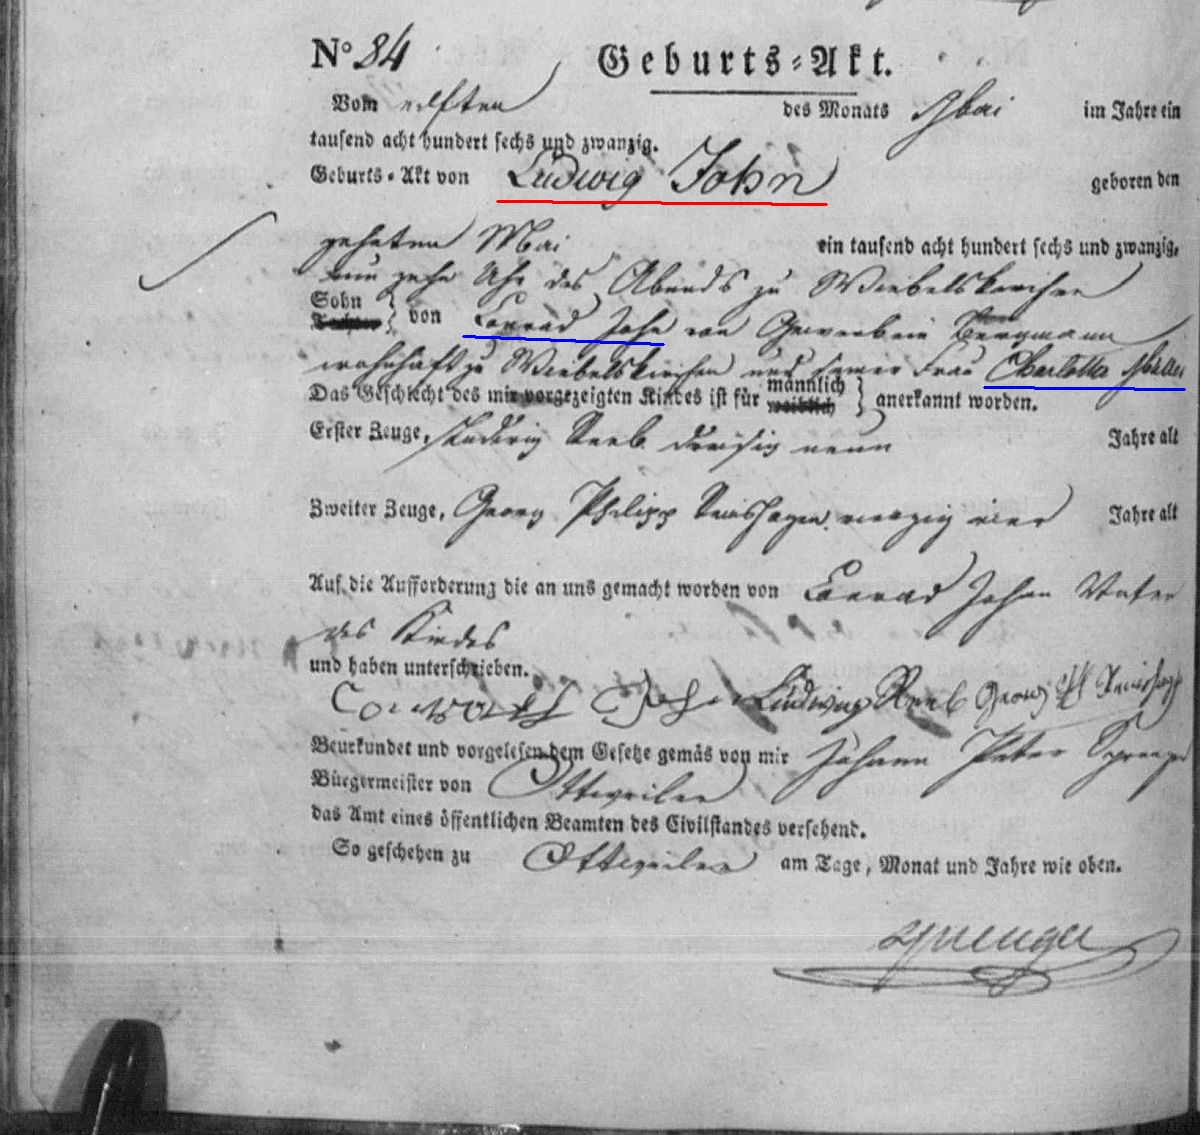 N° 84 Geburts-Akt.
Vom eilften des Monats Mai im Jahre ein
tausend acht hundert sechs und zwanzig.
Geburts-Akt von Ludwig John geboren den
zehnten Mai ein tausend acht hundert sechs und zwanzig,
um zehn Uhr des Abends zu Wiebelskirchen
Sohn
Tochter } von Conrad John von Gewerb ein Bergmann
wohnhaft zu Wiebelskirchen und seiner Frau Charlotta
Das Geschlecht des mir vorgezeigten Kindes ist für männlich
weiblich } anerkannt worden.
Erster Zeuge, Ludwig Reeb dreisig neun Jahre alt
Zweiter Zeuge, Georg Philipp vierzig vier Jahre alt
Auf die Aufforderung die an uns gemacht worden von Conrad John Vater
des Kindes
und haben unterschrieben.
John Ludwig Reeb Georg
Beurkundet und vorgelesen dem Gesetze gemäs von mir Johann Peter Sprenger
Bürgermeister von Ottweiler
das Amt eines öffentlichen Beamten des Civilstandes versehend.
So geschehen zu Ottweiler am Tage, Monat und Jahre wie oben.
Sprenger